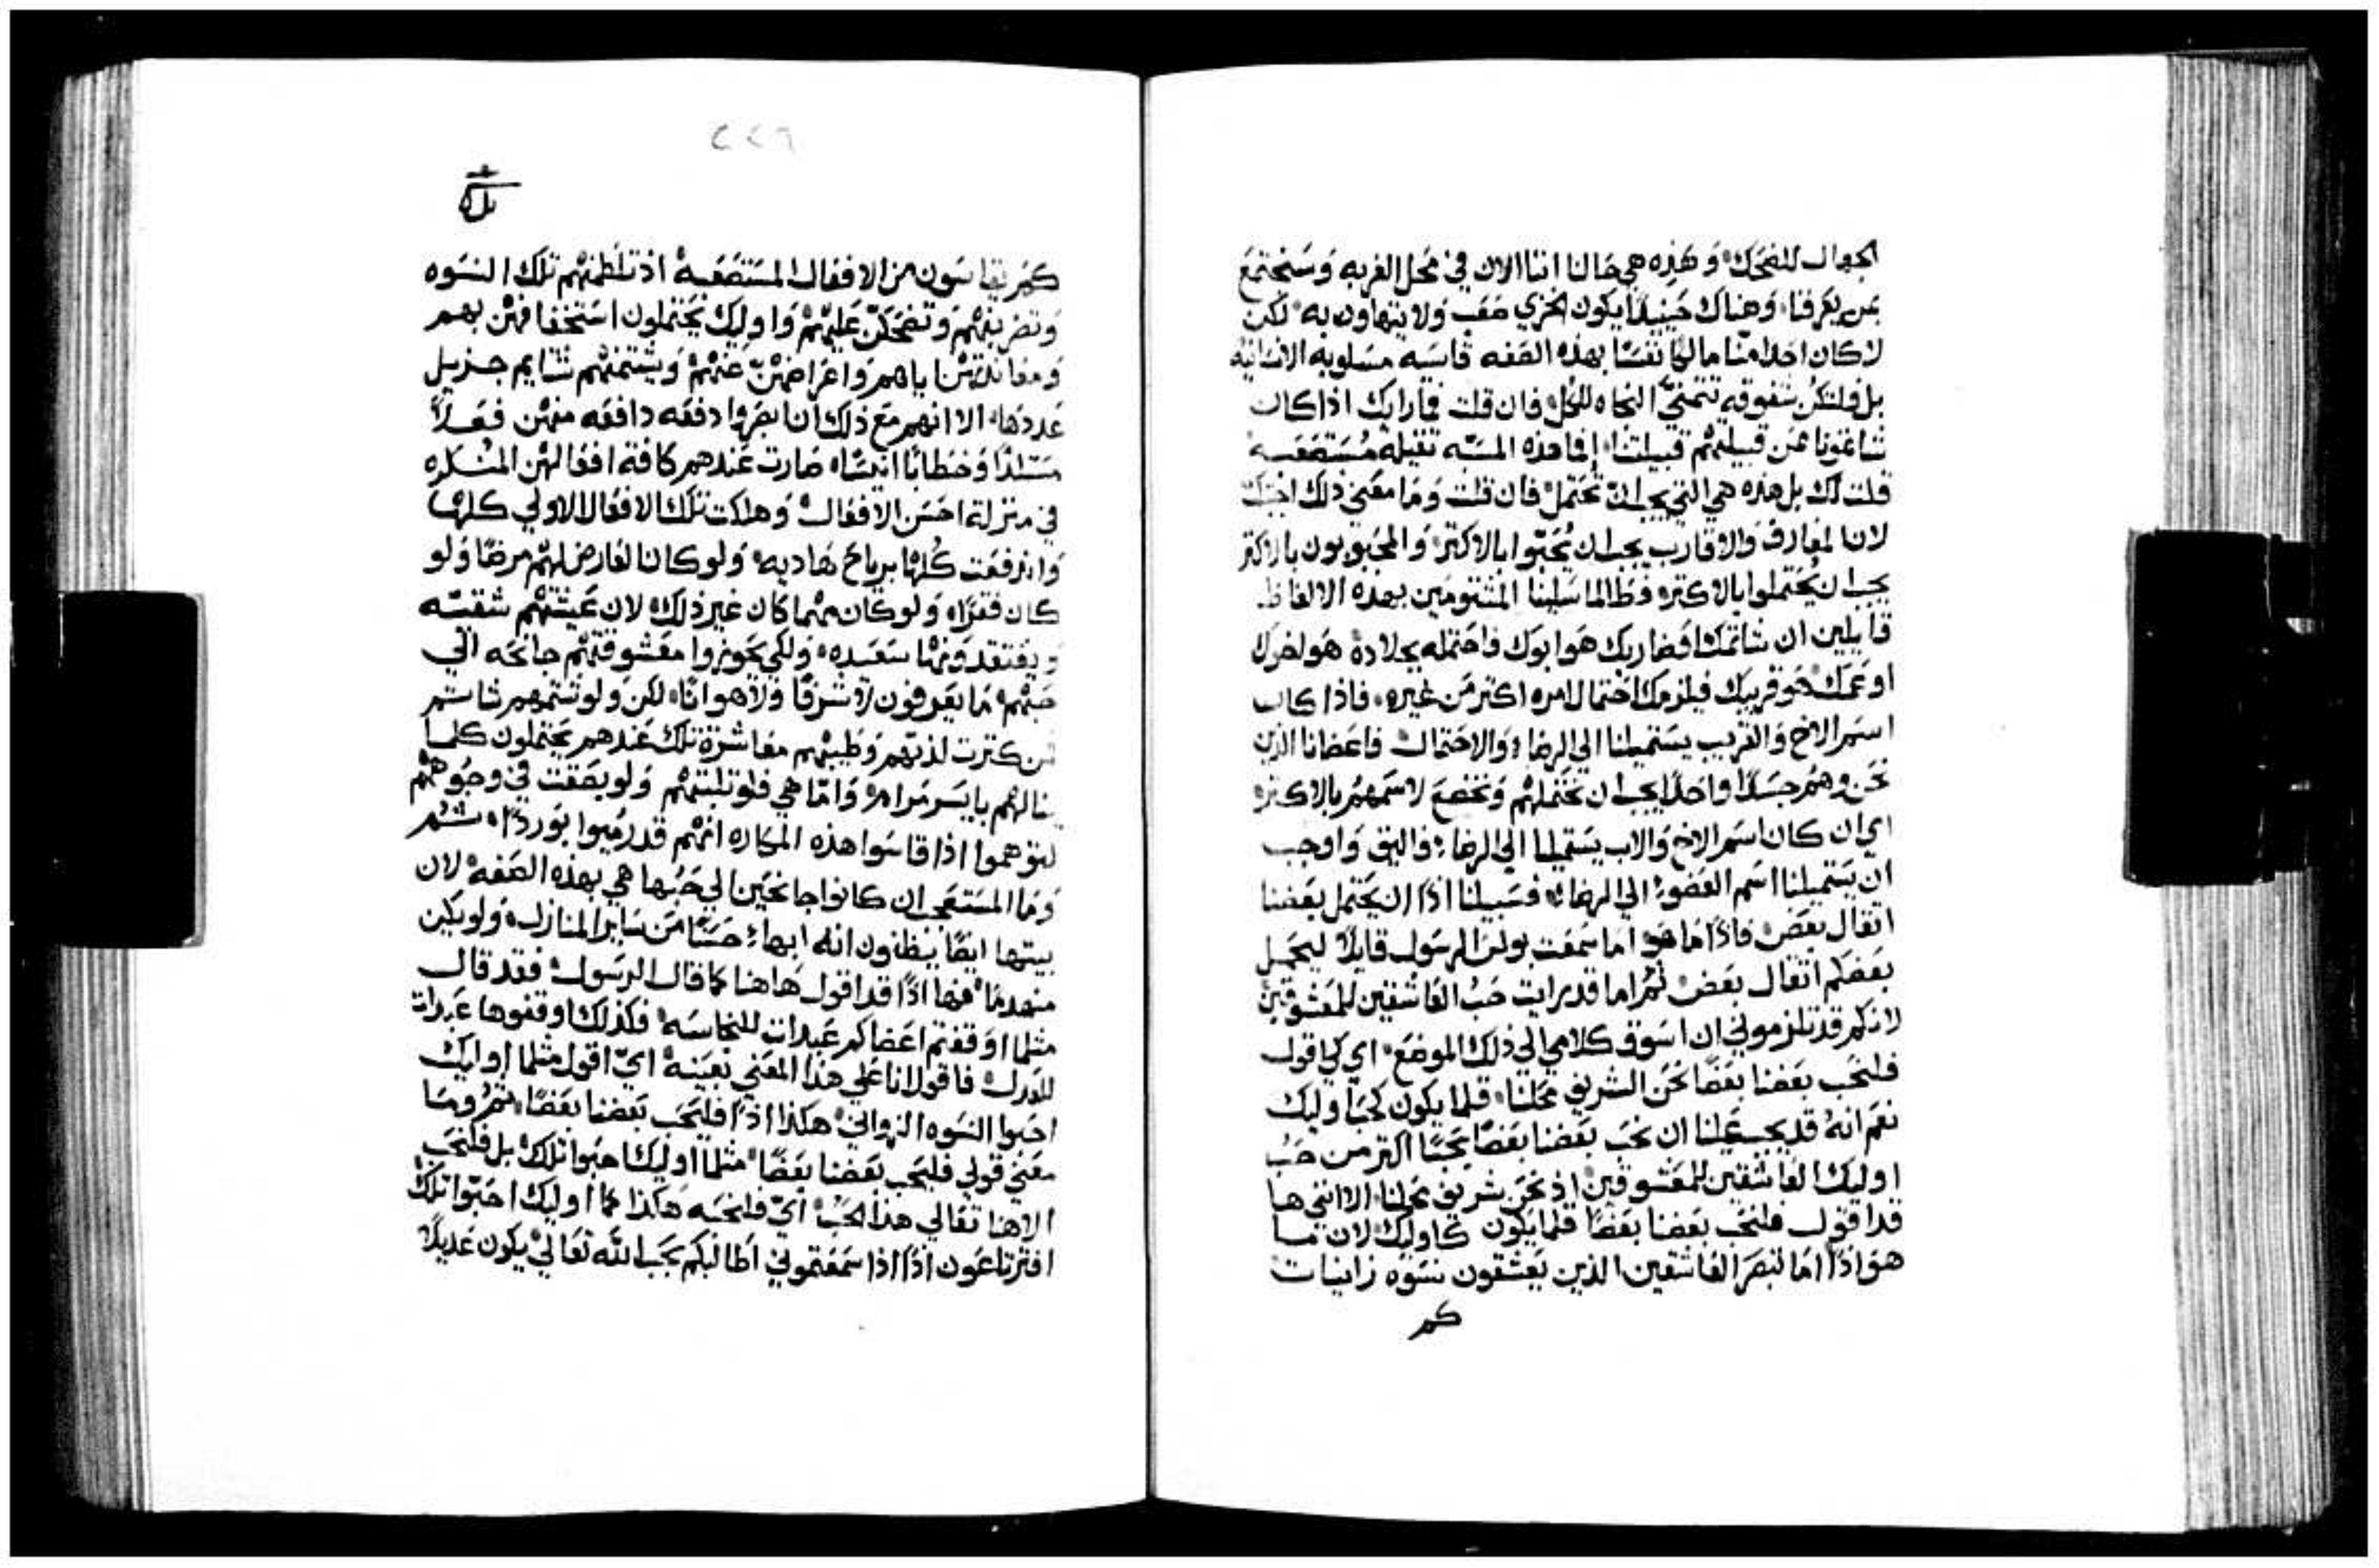 الجهال للضحك، وَهَذِه هي حَالنا اننا الان في محل الغربه وَسَنجتمَعَ
بمن يعَرفنا، وَهناك حَينيذًا يكون الخزي صَعَب وَلا يتهاون به، لكن
لا كان احَدا منّا مالكا نفسًا بهذه الصَفه قاسَيه مسَلوبه الانسَانيه
بل فلتكن شفوقه تتمنيّ النجاه للكل، فان قلت فما رايك اذا كان
شاتمونا من قبيلتهم قبيلتنا، افما هذه المسَبّه ثقيلة مُسَتصَعَبه
قلت لك بل هذه هي التي يجب ان تحَتمل، فان قلت وَمَا معَني ذلك اجبتك
لان المعَارف وَالاقارب يجب ان يُحَبّوا بالاكثر، وَالمحَبوبون بالاكثر
يجب ان يُحَتملوا بالاكثر، وَطالما سَلينا المشتومَين بهذه الالفاظ
قايلين ان شاتمك اوَضاربك هوَ ابوك فاحَتمله بجلادة، هوَ اخوك
او عَمك، هوَ قريبك فيلزمك احَتمال امره اكثر مَن غيره، فاذا كان
اسَم الاخ وَالقريب يسَتميلنا الي الرضَا، وَالاحَتمال فاعَضانا الذين
نحَن وهُم جسَدًا واحَدًا يجب ان نحَتملهم وَنخضَعَ لاسَمهم بالاكثر
اي ان كان اسَم الاخ وَالاب يسَتميلنا الي الرضَا، فاليق وَاوجب
ان يسَتميلنا اسَم العَضو الي الرضَا، فسَبيلنا اذًا ان يحَتمل بعَضنا
اثقال بعَض، فاذًا مَا هوَ امَا سَمعَت بولس الرسَول قايلاً ليحَمل
بعَضكم اثقال بعَض، ثم اما قد رايت حَبُ العَاشقين للمعَشوقين
لانكم قد تلزموني ان اسَوق كلامي الي ذلك الموضَعَ، اي كي اقول
فلنحَب بعَضنا بعَضًا نحَن الشريف محَلنا، قلما يكون كحَبَ اوليك
نعَم انهُ قد يجب عَلينا ان نحَب بعَضنا بعَضًا بحَبًا اكثر من حَبُ
اوليك العَاشقين للمعَشوقين، اذ نحَن شريف محَلنا، الا انني ها
قد اقول فلنحَب بعَضنا بعَضًا قلما يكون كاوليك، لان مَا
هوَ اذًا امَا تبصَر العَاشقين الذين يعَشقون نسَوَه زانيات
كم
٢٢٦
كم يقاسَون من الافعَال المسَتصَعَبه، اذ تلطمهُم تلك النسَوه
وَتضربهُم وَتضحَكن عَليهُم وَاوليك يحَتملون اسَتخفافهُن بهم
وَمعَاندتهُن اياهم وَاعَراضهُن عَنهُم وَيشتمنهُم شتايم جزيل
عَددهَا، الا انهم مَعَ ذلك ان ابصَروا دفعَه دافعَه منهُن فعَلاً
مسَتلذًا وَخطابًا انيسًا، صَارت عَندهم كافة افعَالهُن المنكره
في منزلة احَسَن الافعَال، وَهلكت تلك الافعَال الاولي كلها
وَاندفعَت كُلها برياح هَاديه، وَلو كان العَارض لهُم مرضًا وَلو
كان فقرًا، وَلو كان مهُما كان غير ذلك، لان عَيشتهُم شقيّه
وَيعَتقدونها سَعَيده، وَلكي يحَوزوا معَشوقتهُم جانحَه الي
حَبهُم، مَا يعَرفون لا شرفًا وَلا هوانًا، لكن وَلو شتمهم شاتم
من كثرت لذتهم وَطيبهُم معَاشرة تلك عَندهم يحَتملون كلما
ينالهُم بايسَر مَرام، وَامّا هي فلو ثلبتهُم وَلو بصَقت في وجوههُم
لتوَهموا اذا قاسَوا هذه المكاره انهُم قد رُميوا بوَردًا، ثم
وَمَا المسَتعَجب ان كانوا جانحَين الي حَبُها هي بهذه الصَفه، لان
بيتها ايضًا يظنون انه ابها، حَسَنًا مَن سَاير المنازل، وَلو يكن
منهدمَا، فها اذًا قد اقول هَاهنا كما قال الرسَول، فقد قال
مثلما اوَقفتم اعَضاكم عَبدات للنجاسَه، فكذلك اوقفوها عَبدات
للبرّ، فاقول انا عَلي هذا المعَني بعَينهُ ايّ اقول مثلما اوليك
احَبوا النسَوه الزواني، هكذا اذًا فلنحَب بعَضنا بعَضًا، ثم وَمَا
معَني قولي فلنحَب بعَضنا بعَضًا، مثلما اوليك احَبوا تلك، بل فلنحَب
الاهنا تعَالي هذا الحَبُ، ايّ فلنحَبه هَكذا كما اوليك احَبّوا تلك
افترتاعَون اذًا اذا سَمعَتموني اطالبكم بحَب الله تعَاليٰ يكون عَديلاً